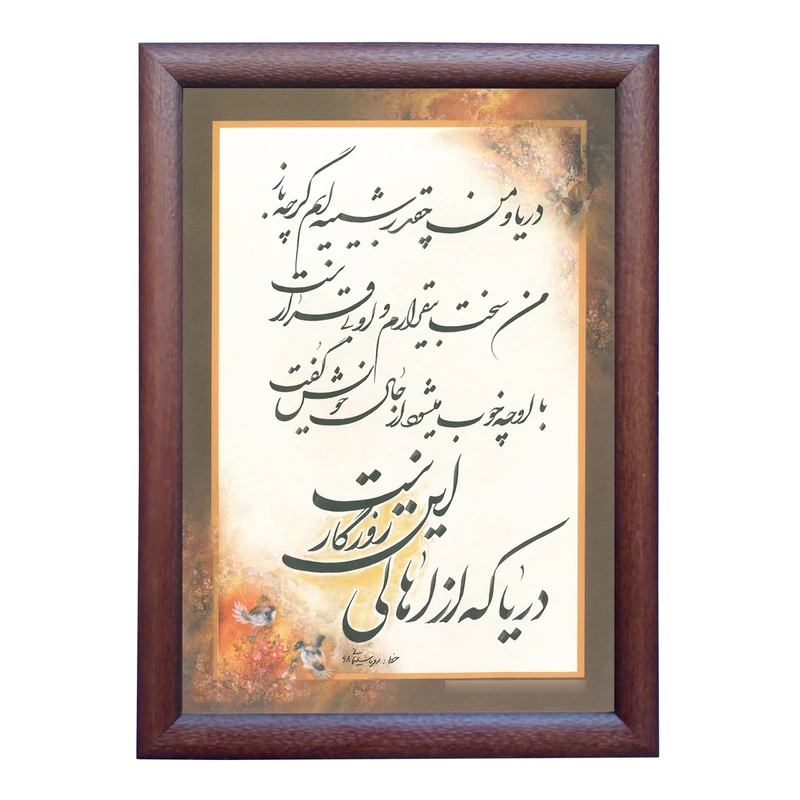 دریا و من چقدر شبیه‌ایم گرچه باز
من سخت بیقرارم و او بی‌قرار نیست
با او چه خوب میشود از حال خویش گفت
دریا که از اهالی این روزگار نیست
خط: سلیمانی ۹۸